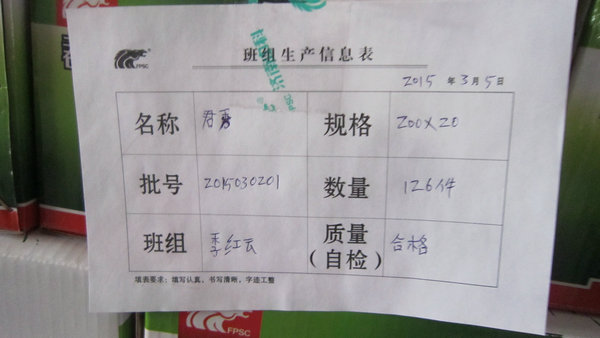 FPSC
班组生产信息表
2015 年 3 月 5 日
名称 君勇 规格 200×20
批号 2015030201 数量 126件
班组 李红云 质量(自检) 合格
填表要求:填写认真,书写清晰,字迹工整
FPSC